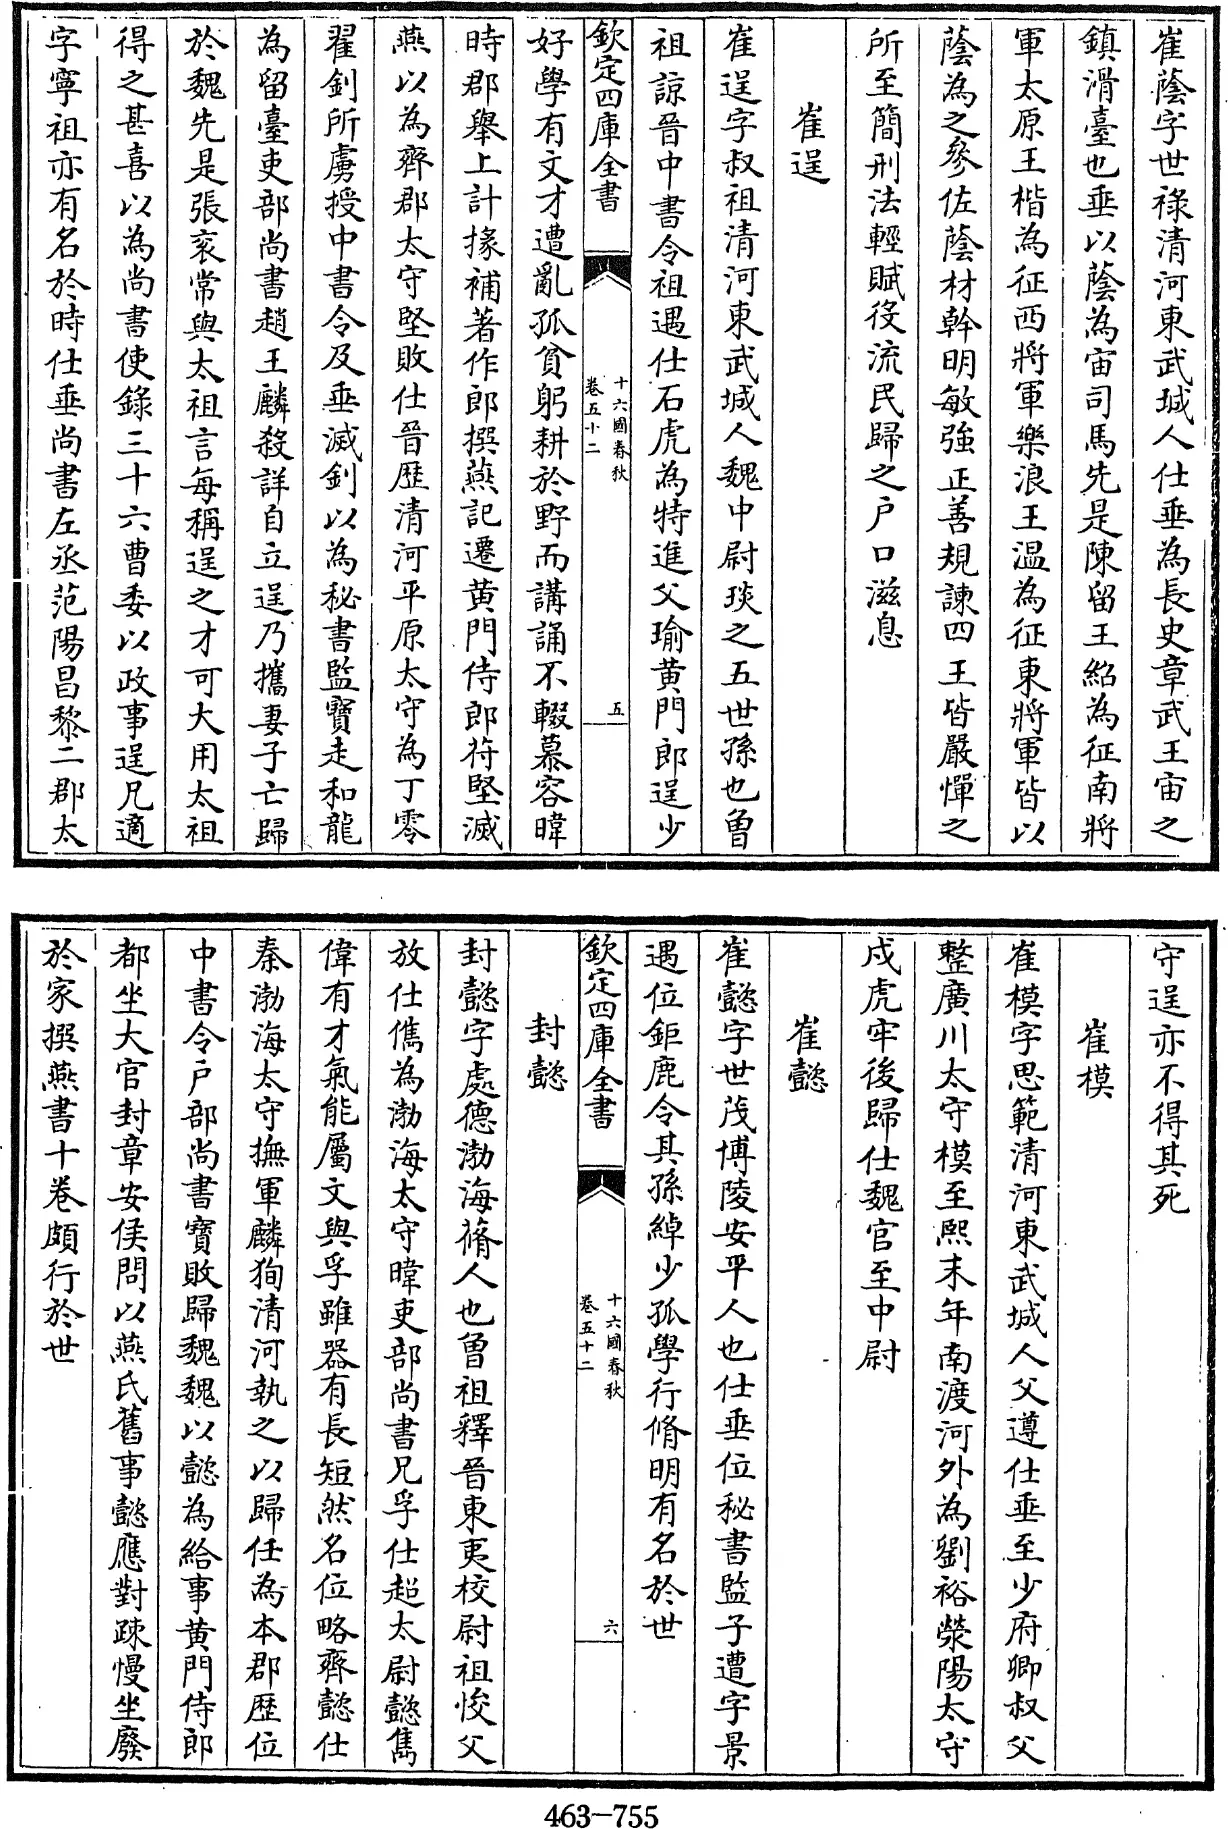 崔蔭字世祿清河東武城人仕垂為長史章武王宙之
鎮滑臺也垂以蔭為宙司馬先是陳留王紹為征南將
軍太原王楷為征西將軍樂浪王溫為征東將軍皆以
蔭為之參佐蔭材幹明敏強正善規諫四王皆嚴憚之
所至簡刑法輕賦役流民歸之戶口滋息
崔逞
崔逞字叔祖清河東武城人魏中尉琰之五世孫也曾
祖諒晉中書令祖遇仕石虎為特進父瑜黃門郎逞少
欽定四庫全書
十六國春秋
卷五十二
五
好學有文才遭亂孤貧躬耕於野而講誦不輟慕容暐
時郡舉上計掾補著作郎撰燕記遷黃門侍郎苻堅滅
燕以為齊郡太守堅敗仕晉歷清河平原太守為丁零
翟釗所虜授中書令及垂滅釗以為秘書監寶走和龍
為留臺吏部尚書趙王麟殺詳自立逞乃攜妻子亡歸
於魏先是張袞常與太祖言每稱逞之才可大用太祖
得之甚喜以為尚書使錄三十六曹委以政事逞兄適
字寧祖亦有名於時仕垂尚書左丞范陽昌黎二郡太
守逞亦不得其死
崔模
崔模字思範清河東武城人父遵仕垂至少府卿叔父
整廣川太守模至熙末年南渡河外為劉裕滎陽太守
戍虎牢後歸仕魏官至中尉
崔懿
崔懿字世茂博陵安平人也仕垂位秘書監子遭字景
遇位鉅鹿令其孫綽少孤學行脩明有名於世
欽定四庫全書
十六國春秋
卷五十二
六
封懿
封懿字處德渤海蓨人也曾祖釋晉東夷校尉祖悛父
放仕儁為渤海太守暐吏部尚書兄孚仕超太尉懿雋
偉有才氣能屬文與孚雖器有長短然名位略齊懿仕
秦渤海太守撫軍麟狥清河執之以歸任為本郡歷位
中書令戶部尚書寶敗歸魏魏以懿為給事黃門侍郎
都坐大官封章安侯問以燕氏舊事懿應對踈慢坐廢
於家撰燕書十卷頗行於世
463-755